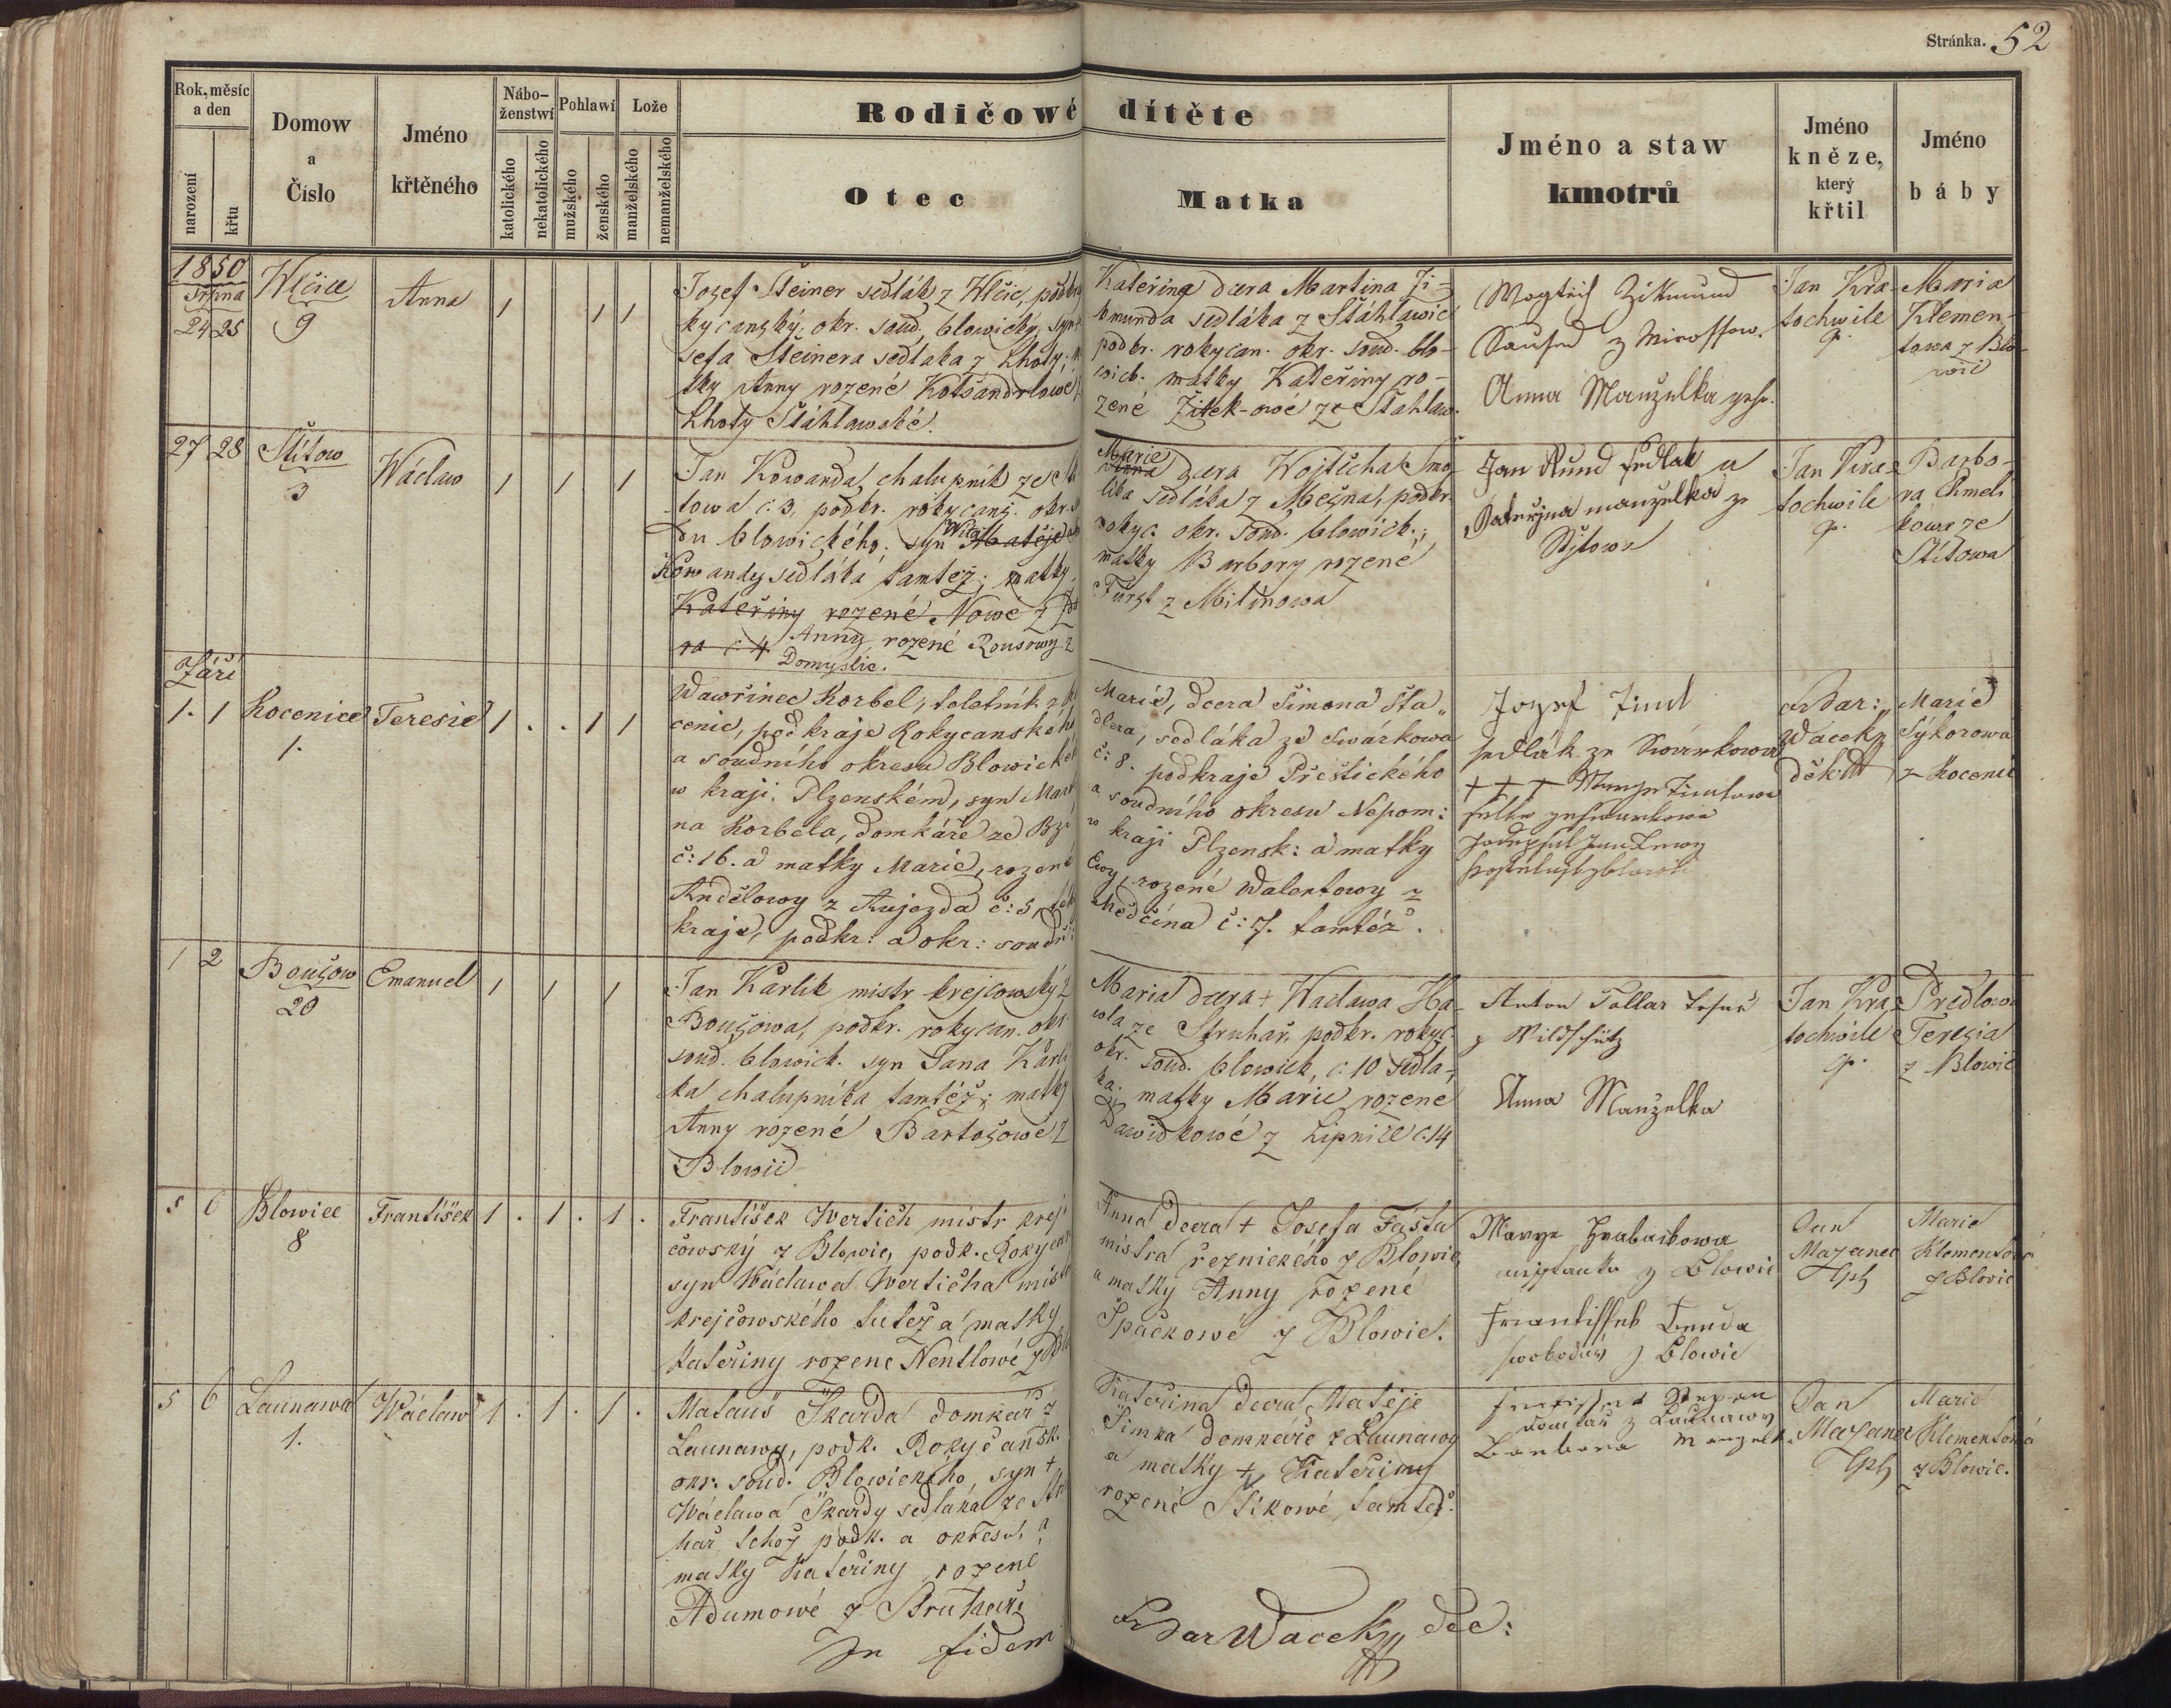 Stránka. 52
Rok, měsíc a den
narození
křtu
Domow
a
Číslo
Jméno
křtěného
Nábo-
ženstwí
katolického
nekatolického
Pohlawí
mužského
ženského
Lože
manželského
nemanželského
Rodičowé dítěte
Otec
Matka
Jméno a staw
kmotrů
Jméno
kněze,
který
křtil
Jméno
báby
1850
Srpna
24 25
Wlčice
9
Anna
1 1 1
Josef Šteiner sedlák z Wlčic, podkr.
kycanský, okr. soud. blowický, syn
sefa Šteinera sedláka z Lhoty,
tky Anny rozené Kotšandrlowé
Lhoty Štáhlawské.
Kateřina dcera Martina Zi-
kmunda sedláka z Štáhlawic
podkr. rokycan. okr. soud. blo-
wick. matky Kateřiny ro-
zené Žitek-owé ze Štahlaw.
Wogtěch Zikmund
Saused z Mirossow.
Anna Manželka geho.
Jan Kra-
tochwile
p.
Maria
Klemen-
towa z Blo-
wic
27 28
Štítow
3
Wáclaw
1 1 1
Jan Kowanda, chalupník ze
towa č. 3, podkr. rokycans. okr.
du blowického, syn Matěje
Kowandy sedláka tamtéž; matky
Kateřiny rozené Nowé z
ra č. 4 Anny rozené Rousowy z
Domyslic.
Marie
dcera Wojtěcha Smo-
lika sedláka z Mešna, podkr.
rokyc. okr. soud. blowick.,
matky Barbory rozené
Fürst z Mitinowa
Jan Rund sedlak a
Kateřina manželka ze
Sstitowa
Jan Kra-
tochwile
p.
Barbo-
ra Chmeli-
kowa ze
Štítowa
Září
1. 1
Kocenice
1.
Teresie
1 . . 1 1
Wawřinec Korbel, toletník z
cenic, podkraje Rokycanského
a soudního okresu Blowické
w kraji Plzenském, syn Mart
na Korbela, domkáře ze Bzi
č: 16. a matky Marie, rozené
Andělowy z Aujezda č: 5,
kraje, podkr: a okr: soudní:
Marie, dcera Šimona Šta-
dlera, sedláka ze Swárkowa
č: 8. podkraje Přeštického
a soudního okresu Nepom:
w kraji Plzensk: a matky
Ewy, rozené Walentowy z
Medčína č: 7. tamtéž.
Jozef Zind
sedlák ze Swárkowa
+ + +
Bar:
Wacek
děk.
Marie
Sýkorowa
z Kocenic
1 2
Boušow
20
Emanuel
1 1 1
Jan Karlík mistr krejčowský z
Boušowa, podkr. rokycan. okr.
soud. blowick. syn Jana Karli
ka chalupníka tamtéž; matky
Anny rozené Bartošowé z
Blowic
Maria dcera + Wáclawa Ha-
wla ze Struhař podkr. rokyc.
okr. soud. blowick, č. 10 sedla-
ka; matky Marie rozené
Dawidkowé z Lipnice č. 14
Anton Tollar
z Wildschütz
Anna Manželka
Jan Kra-
tochwile
p.
Predlowa
Teresia
z Blowic
5 6
Blowice
8
František
1 . 1 . 1 .
František Wertich mistr krej
čowský z Blowic, podk. Rokycan
syn Wáclawa Werticha mistr
krejčowského tutéž a matky
Kateřiny rozené Nentlowé z Blo
Anna dcera + Josefa Fašta
mistra řeznického z Blowic
a matky Anny rozené
Špačkowé z Blowic.
Marye Hrabaikowa
z Blowic
Frantissek Benda
z Blowic
Jan
Mazanec
Marie
Klementowá
z Blowic
5 6
Launawa
1.
Wáclaw
1 . 1 . 1 .
Matauš Škarda domkář z
Launawy, podk. Rokyčansk.
okr. soud. Blowického, syn +
Wáclawa Škardy sedláka ze Stru
hař, tehož podk. a okresu, a
matky Kateřiny rozené
Adamowé z Struhaře
Kateřina dcera Matěje
Šimka domkáře z Launawy
a matky + Kateřiny
rozené Štikowé tamtéž.
Stepan
domkář z Launawy
Barbora manzelk.
Jan
Mazanec
Marie
Klementowá
z Blowic.
In fidem
Wacek dec: